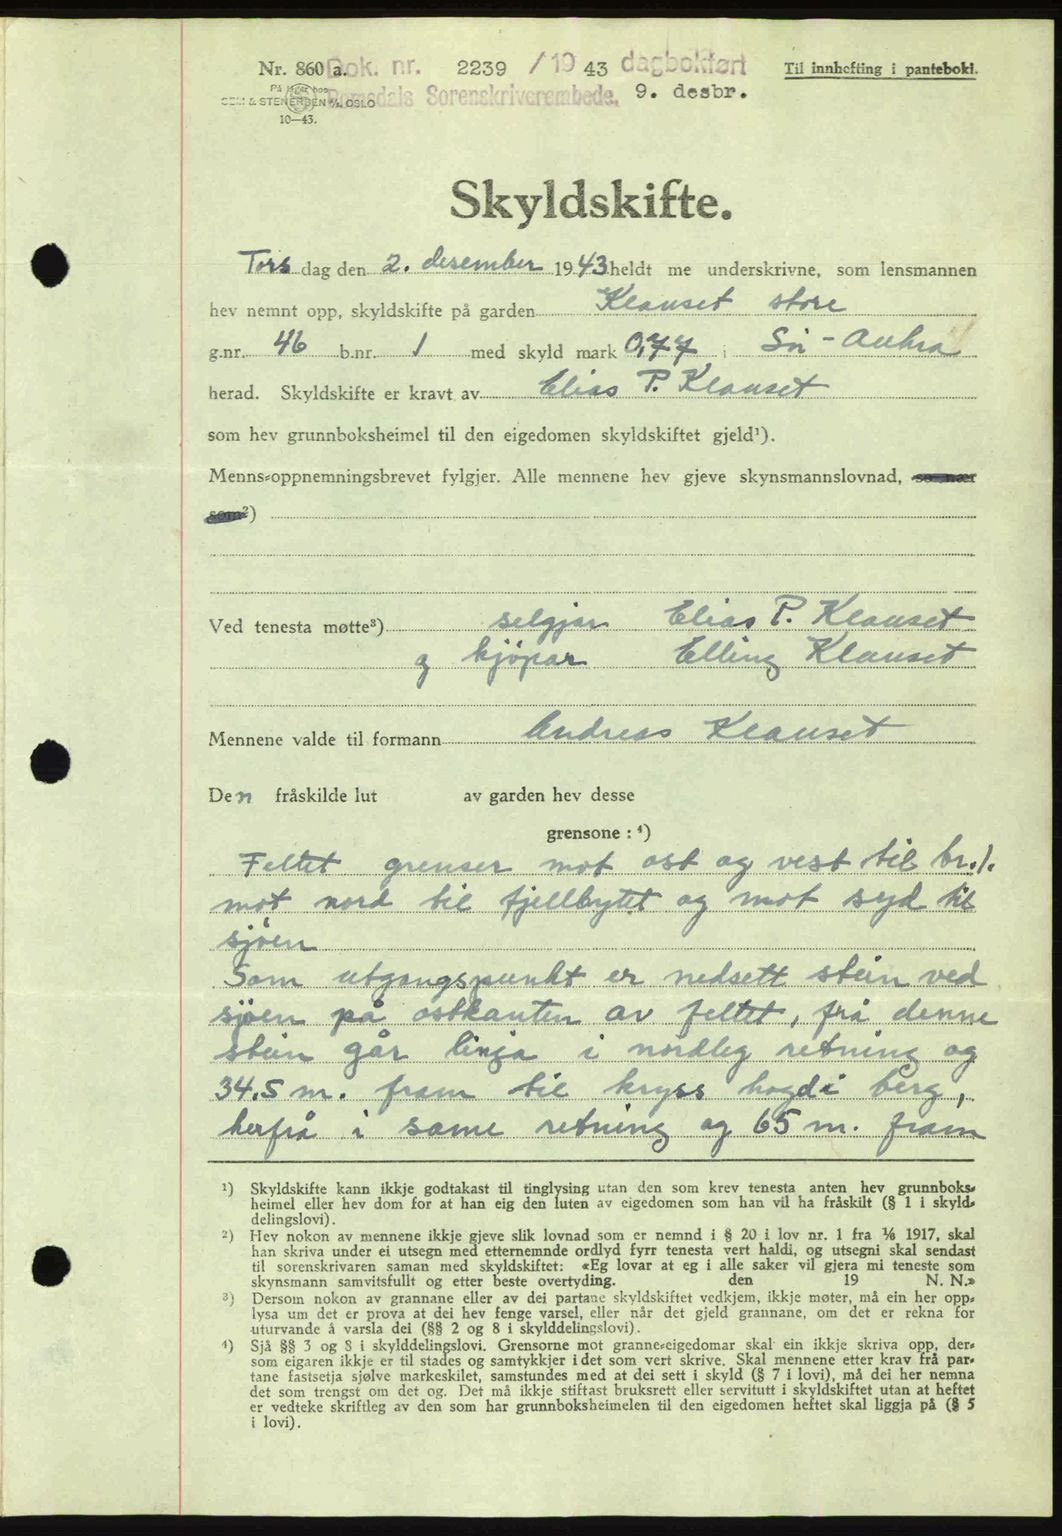 Nr. 860 a. Dok. nr. 2239 / 19 43 dagbokført Til innhefting i pantebok.
På lager hos Romsdals Sorenskriverembede, 9. desbr.
SEM & STENERSEN A/S, OSLO
10—43.
Skyldskifte.
Tors dag den 2. desember 1943 heldt me underskrivne, som lensmannen
hev nemnt opp, skyldskifte på garden Klauset store
g.nr. 46 b.nr. 1 med skyld mark 0,77 i Sör-Aukra
herad. Skyldskifte er kravt av Elias P. Klauset
som hev grunnboksheimel til den eigedomen skyldskiftet gjeld¹).
Menns-oppnemningsbrevet fylgjer. Alle mennene hev gjeve skynsmannslovnad, so nær
som²)
Ved tenesta møtte³) selgjar Elias P. Klauset
og kjöpar Elling Klauset
Mennene valde til formann Andreas Klauset
Den fråskilde lut av garden hev desse
grensone : ⁴)
Feltet grenser mot ost og vest til br. 1.
mot nord til fjellbytet og mot syd til
sjöen
Som utgangspunkt er nedsett stein ved
sjöen på ostkanten av feltet, frå denne
stein går linja i nordleg retning og
34.5 m. fram til kryss hogd i berg,
herfrå i same retning og 65 m. fram
¹) Skyldskifte kann ikkje godtakast til tinglysing utan den som krev tenesta anten hev grunnboks-
heimel eller hev dom for at han eig den luten av eigedomen som han vil ha fråskilt (§ 1 i skyld-
delingslovi).
²) Hev nokon av mennene ikkje gjeve slik lovnad som er nemnd i § 20 i lov nr. 1 fra ¹/₆ 1917, skal
han skriva under ei utsegn med etternemnde ordlyd fyrr tenesta vert haldi, og utsegni skal sendast
til sorenskrivaren saman med skyldskiftet: «Eg lovar at eg i alle saker vil gjera mi teneste som
skynsmann samvitsfullt og etter beste overtyding. den 19 N. N.»
³) Dersom nokon av grannane eller av dei partane skyldskiftet vedkjem, ikkje møter, må ein her opp-
lysa um det er prova at dei hev fenge varsel, eller når det gjeld grannane, om det er rekna for
uturvande å varsla dei (§§ 2 og 8 i skylddelingslovi).
⁴) Sjå §§ 3 og 8 i skylddelingslovi. Grensorne mot granne-eigedomar skal ein ikkje skriva opp, der-
som eigaren ikkje er til stades og samtykkjer i det som vert skrive. Skal mennene etter krav frå par-
tane fastsetja sjølve markeskilet, samstundes med at dei sett i skyld (§ 7 i lovi), må dei her nemna
det som trengst om det og. Det må ikkje stiftast bruksrett eller servitutt i skyldskiftet utan at heftet
er vedteke skriftleg av den som har grunnboksheimelen til den eigedomen heftet skal liggja på (§ 5
i lovi).